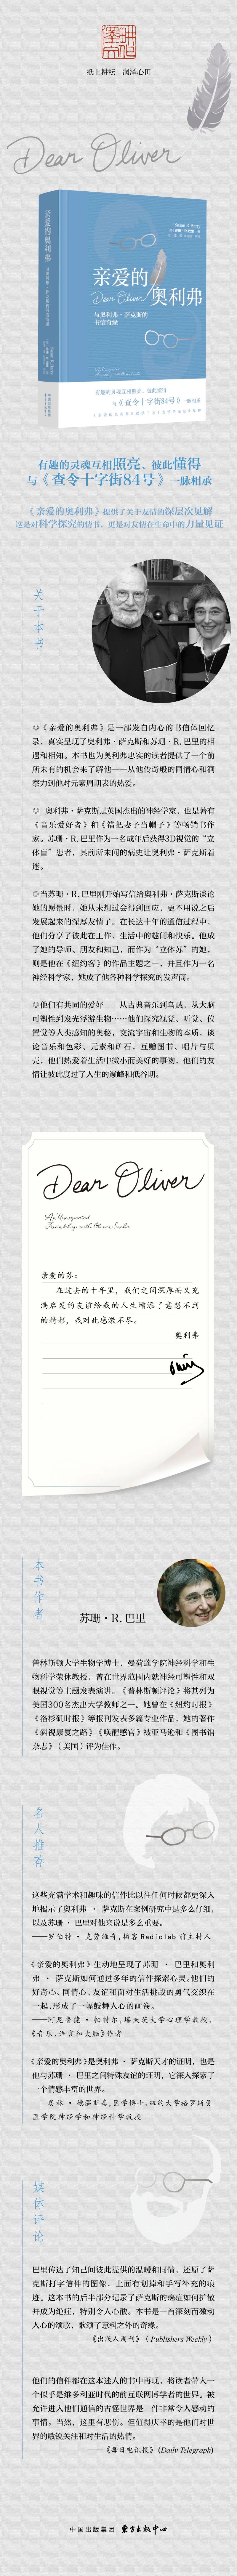 纸上耕耘 润泽心田
Dear Oliver
亲爱的奥利弗
与奥利弗·萨克斯的
书信奇缘
Susan R. Barry
亲爱的
Dear Oliver
奥利弗
与奥利弗·萨克斯的
书信奇缘
有趣的灵魂互相照亮、彼此懂得
与《查令十字街84号》一脉相承
有趣的灵魂互相照亮、彼此懂得
与《查令十字街84号》一脉相承
《亲爱的奥利弗》提供了关于友情的深层次见解
这是对科学探究的情书，更是对友情在生命中的力量见证
关于本书
◎《亲爱的奥利弗》是一部发自内心的书信体回忆
录，真实呈现了奥利弗·萨克斯和苏珊·R.巴里的相
遇和相知。本书也为奥利弗忠实的读者提供了一个前
所未有的机会来了解他——从他传奇般的同情心和洞
察力到他对元素周期表的热爱。
◎ 奥利弗·萨克斯是英国杰出的神经学家，也是著有
《音乐爱好者》和《错把妻子当帽子》等畅销书作
家。苏珊·R.巴里作为一名成年后获得3D视觉的“立
体盲”患者，其前所未闻的病史让奥利弗·萨克斯着
迷。
◎当苏珊·R.巴里刚开始写信给奥利弗·萨克斯谈论
她的愿景时，她从未想过会得到回应，更不用说之后
发展起来的深厚友情了。在长达十年的通信过程中，
他们分享了彼此在工作、生活中的趣闻和快乐。他成
了她的导师、朋友和知己，而作为“立体苏”的她，
则是他在《纽约客》的作品主题之一，并且作为一名
神经科学家，她成了他各种科学探究的发声筒。
◎他们有共同的爱好——从古典音乐到乌贼，从大脑
可塑性到发光浮游生物……他们探究视觉、听觉、位
置觉等人类感知的奥秘，交流宇宙和生物的本质，谈
论音乐和色彩、元素和矿石，互赠图书、唱片与贝
壳，他们热爱着生活中微小而美好的事物，他们的友
情让彼此度过了人生的巅峰和低谷期。
Dear Oliver
An Unexpected
Friendship with Oliver Sacks
亲爱的苏：
在过去的十年里，我们之间深厚而又充
满启发的友谊给我的人生增添了意想不到
的精彩，我对此感激不尽。
奥利弗
本书作者
苏珊·R.巴里
普林斯顿大学生物学博士，曼荷莲学院神经科学和生
物科学荣休教授，曾在世界范围内就神经可塑性和双
眼视觉等主题发表演讲。《普林斯顿评论》将其列为
美国300名杰出大学教师之一。她曾在《纽约时报》
《洛杉矶时报》等报刊发表多篇专业作品，她的著作
《斜视康复之路》《唤醒感官》被亚马逊和《图书馆
杂志》（美国）评为佳作。
名人推荐
这些充满学术和趣味的信件比以往任何时候都更深入
地揭示了奥利弗 · 萨克斯在案例研究中是多么仔细，
以及苏珊 · 巴里对他来说是多么重要。
——罗伯特 · 克劳维奇，播客 Radiolab 前主持人
《亲爱的奥利弗》生动地呈现了苏珊 · 巴里和奥利
弗 · 萨克斯如何通过多年的信件探索心灵。他们的
好奇心、同情心、友谊和面对生活挑战的勇气交织在
一起，形成了一幅鼓舞人心的画卷。
——阿尼鲁德 · 帕特尔，塔夫茨大学心理学教授，
《音乐、语言和大脑》作者
《亲爱的奥利弗》是奥利弗 · 萨克斯天才的证明，也是
他与苏珊 · 巴里之间特殊友谊的证明，它深入探索了
一个情感丰富的世界。
——奥林 · 德温斯基，医学博士，纽约大学格罗斯曼
医学院神经学和神经科学教授
媒体评论
巴里传达了知己间彼此提供的温暖和同情，还原了萨
克斯打字信件的图像，上面有划掉和手写补充的痕
迹。这本书的后半部分记录了萨克斯的癌症如何扩散
并成为绝症，特别令人心酸。本书是一首深刻而激动
人心的颂歌，歌颂了意料之外的奇缘。
——《出版人周刊》（Publishers Weekly）
他们的信件都在这本迷人的书中再现，将读者带入一
个似乎是维多利亚时代的前互联网博学者的世界。被
允许进入他们通信的古怪世界是一件非常令人感动的
事情。当然，这里有悲伤。但值得庆幸的是他们对世
界的敏锐关注和对生活的热情。
——《每日电讯报》（Daily Telegraph）
中国出版集团 东方出版中心